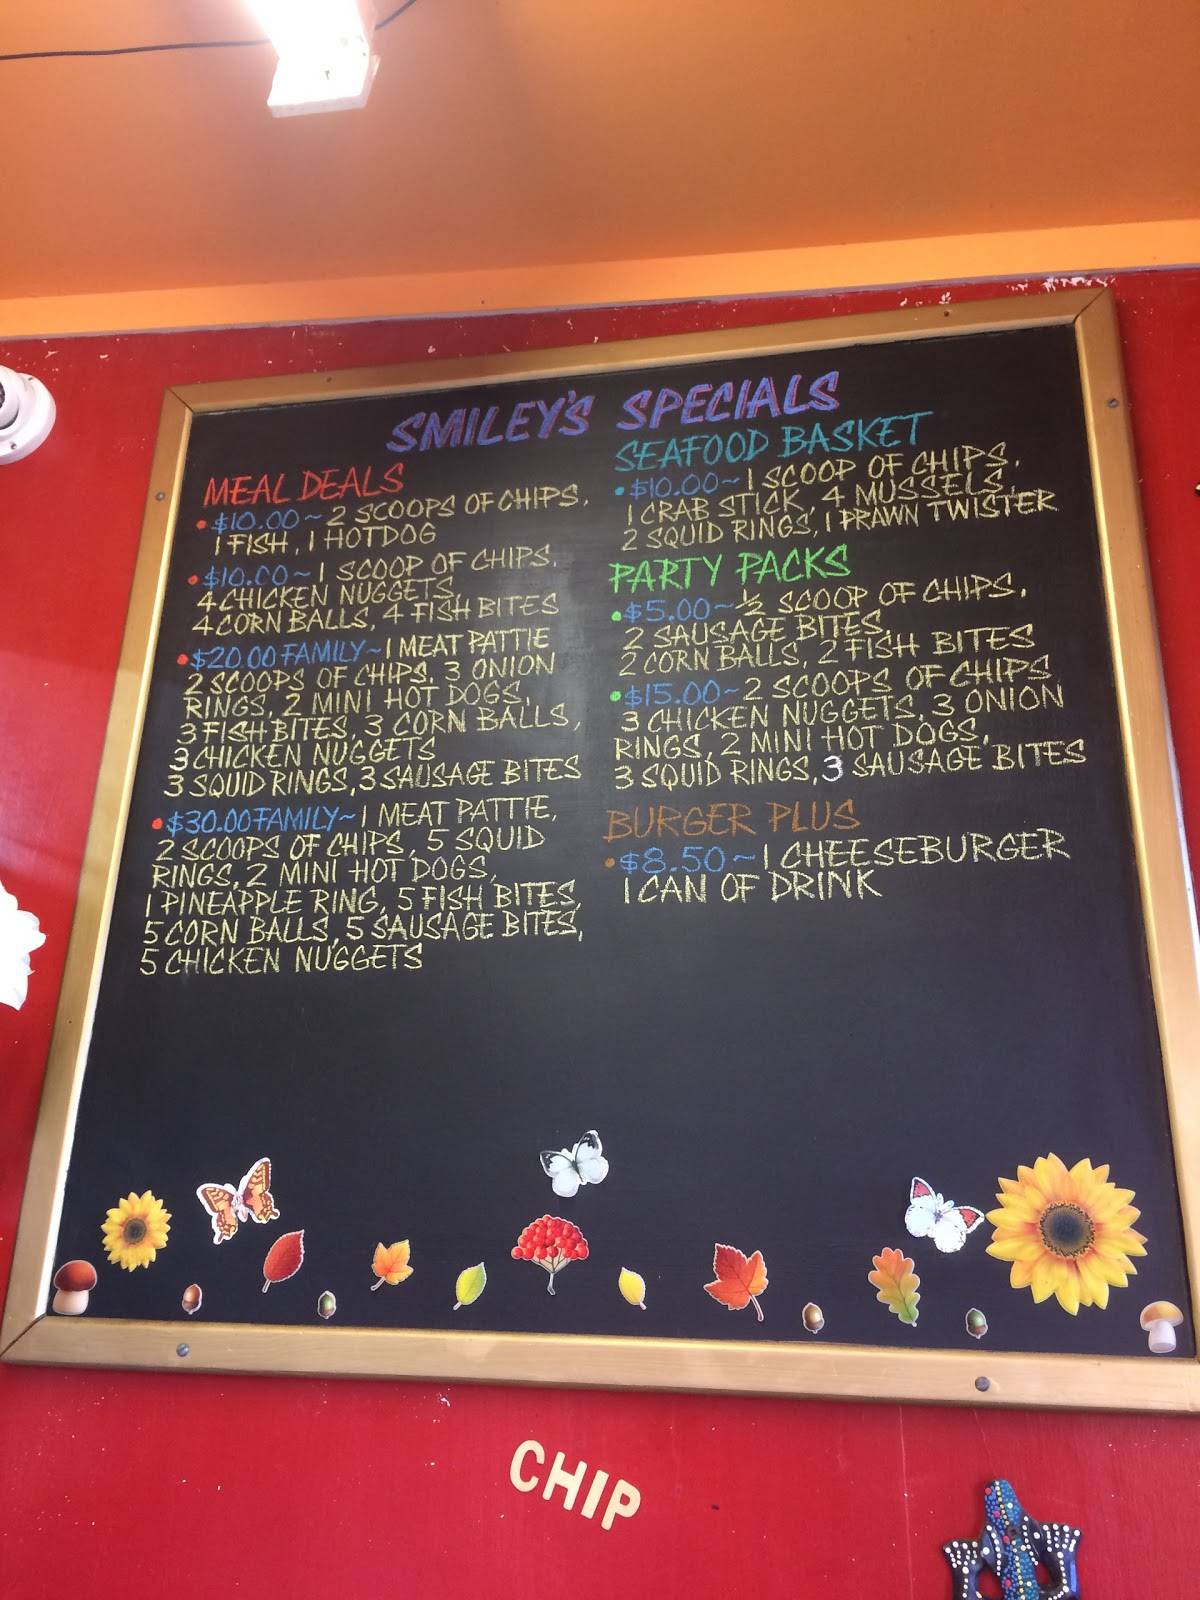 SMILEY'S SPECIALS
MEAL DEALS
• $10.00~2 SCOOPS OF CHIPS,
1 FISH, 1 HOTDOG
• $10.00~1 SCOOP OF CHIPS,
4 CHICKEN NUGGETS,
4 CORN BALLS, 4 FISH BITES
• $20.00 FAMILY~1 MEAT PATTIE
2 SCOOPS OF CHIPS, 3 ONION
RINGS, 2 MINI HOT DOGS,
3 FISH BITES, 3 CORN BALLS,
3 CHICKEN NUGGETS
3 SQUID RINGS, 3 SAUSAGE BITES
• $30.00 FAMILY~1 MEAT PATTIE,
2 SCOOPS OF CHIPS, 5 SQUID
RINGS, 2 MINI HOT DOGS,
1 PINEAPPLE RING, 5 FISH BITES,
5 CORN BALLS, 5 SAUSAGE BITES,
5 CHICKEN NUGGETS
SEAFOOD BASKET
• $10.00~1 SCOOP OF CHIPS,
1 CRAB STICK, 4 MUSSELS,
2 SQUID RINGS, 1 PRAWN TWISTER
PARTY PACKS
• $5.00~½ SCOOP OF CHIPS,
2 SAUSAGE BITES,
2 CORN BALLS, 2 FISH BITES
• $15.00~2 SCOOPS OF CHIPS
3 CHICKEN NUGGETS, 3 ONION
RINGS, 2 MINI HOT DOGS,
3 SQUID RINGS, 3 SAUSAGE BITES
BURGER PLUS
• $8.50~1 CHEESEBURGER
1 CAN OF DRINK
CHIP